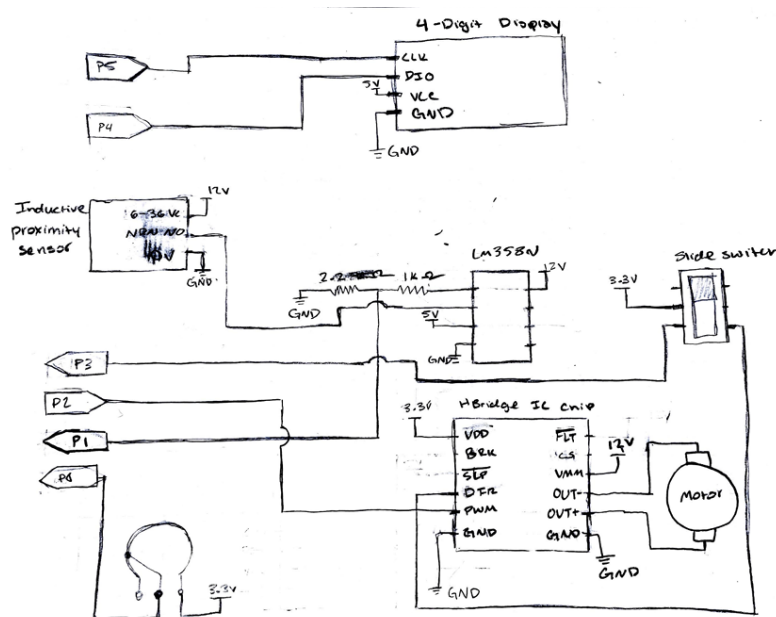 4-Digit Display
P5
CLK
DIO
5V
VCC
GND
P4
GND
Inductive
proximity
sensor
12V
NPN NO
GND
LM358N
1KΩ
GND
5V
GND
Slide switch
3.3V
P3
P2
P1
P0
3.3V
H Bridge IC Chip
VDD
BRK
SLP
DIR
PWM
GND
FLT
CS
VMM
OUT-
OUT+
GND
12V
Motor
GND
GND
3.3V